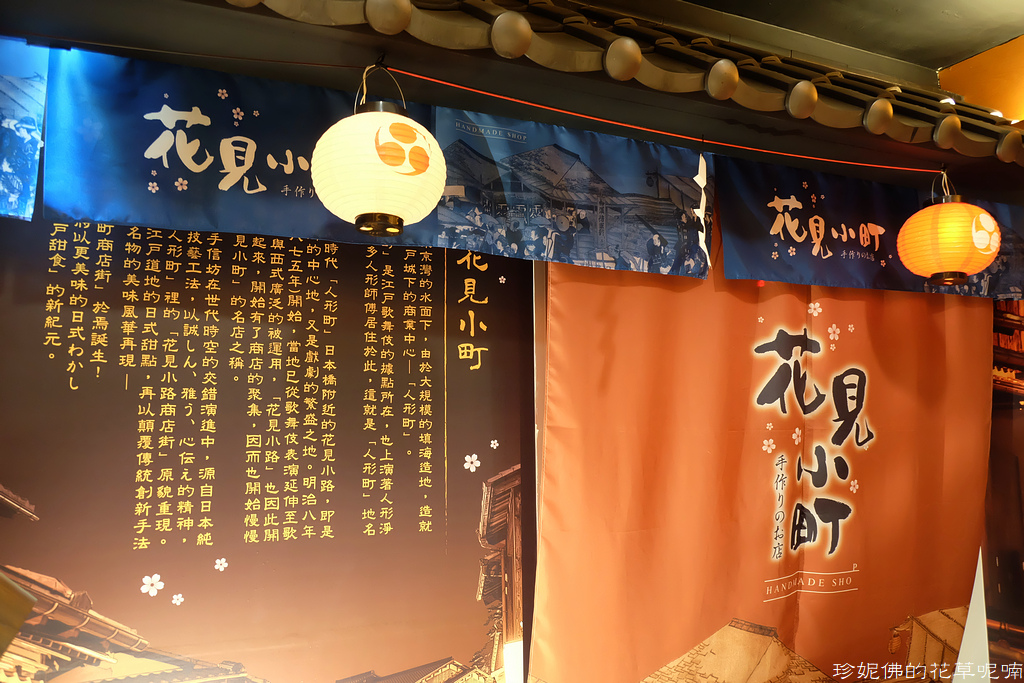 花見小
手作り
HANDMADE SHOP
花見小町
手作りのお店
花見小町
京灣的水面下，由於大規模的填海造地，造就
戶城下的商業中心—「人形町」。
」是江戶歌舞伎的據點所在，也上演著人形淨
多人形師傅居住於此，這就是「人形町」地名
時代「人形町」日本橋附近的花見小路，即是
的中心地，又是戲劇的繁盛之地。明治八年
七五年）開始，當地已從歌舞伎表演延伸至歌
與西式廣泛的被運用，「花見小路」也因此開
起來，開始有了商店的聚集，因而也開始慢慢
見小町」的名店之稱。
手信坊在世代時空的交錯演進中，源自日本純
技藝工法，以誠しん、雅う、心伝え的精神，
人形町」裡的「花見小路商店街」原貌重現。
江戶道地的日式甜點，再以顛覆傳統創新手法
名物的美味風華再現—
町商店街」於焉誕生！
將以更美味的日式わかし
戶甜食」的新紀元。
花見小町
手作りのお店
HANDMADE SHOP
珍妮佛的花草呢喃